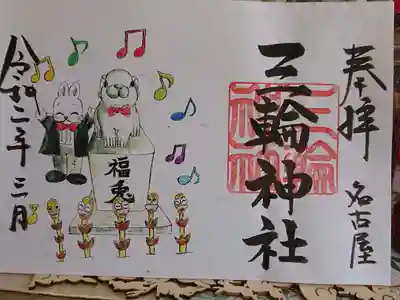 奉拝
名古屋
三輪神社
三輪神社
福兎
令和二年三月